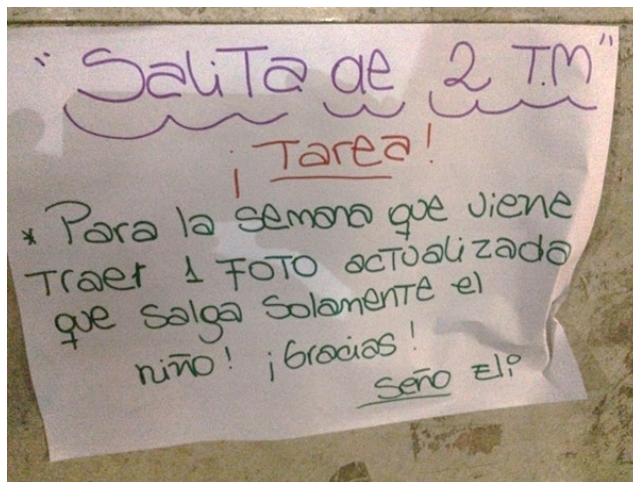 "Salita de 2 T.M"
¡Tarea!
* Para la semana que viene
Traer 1 FOTO actualizada
que salga solamente el
niño! ¡Gracias!
Seño Eli